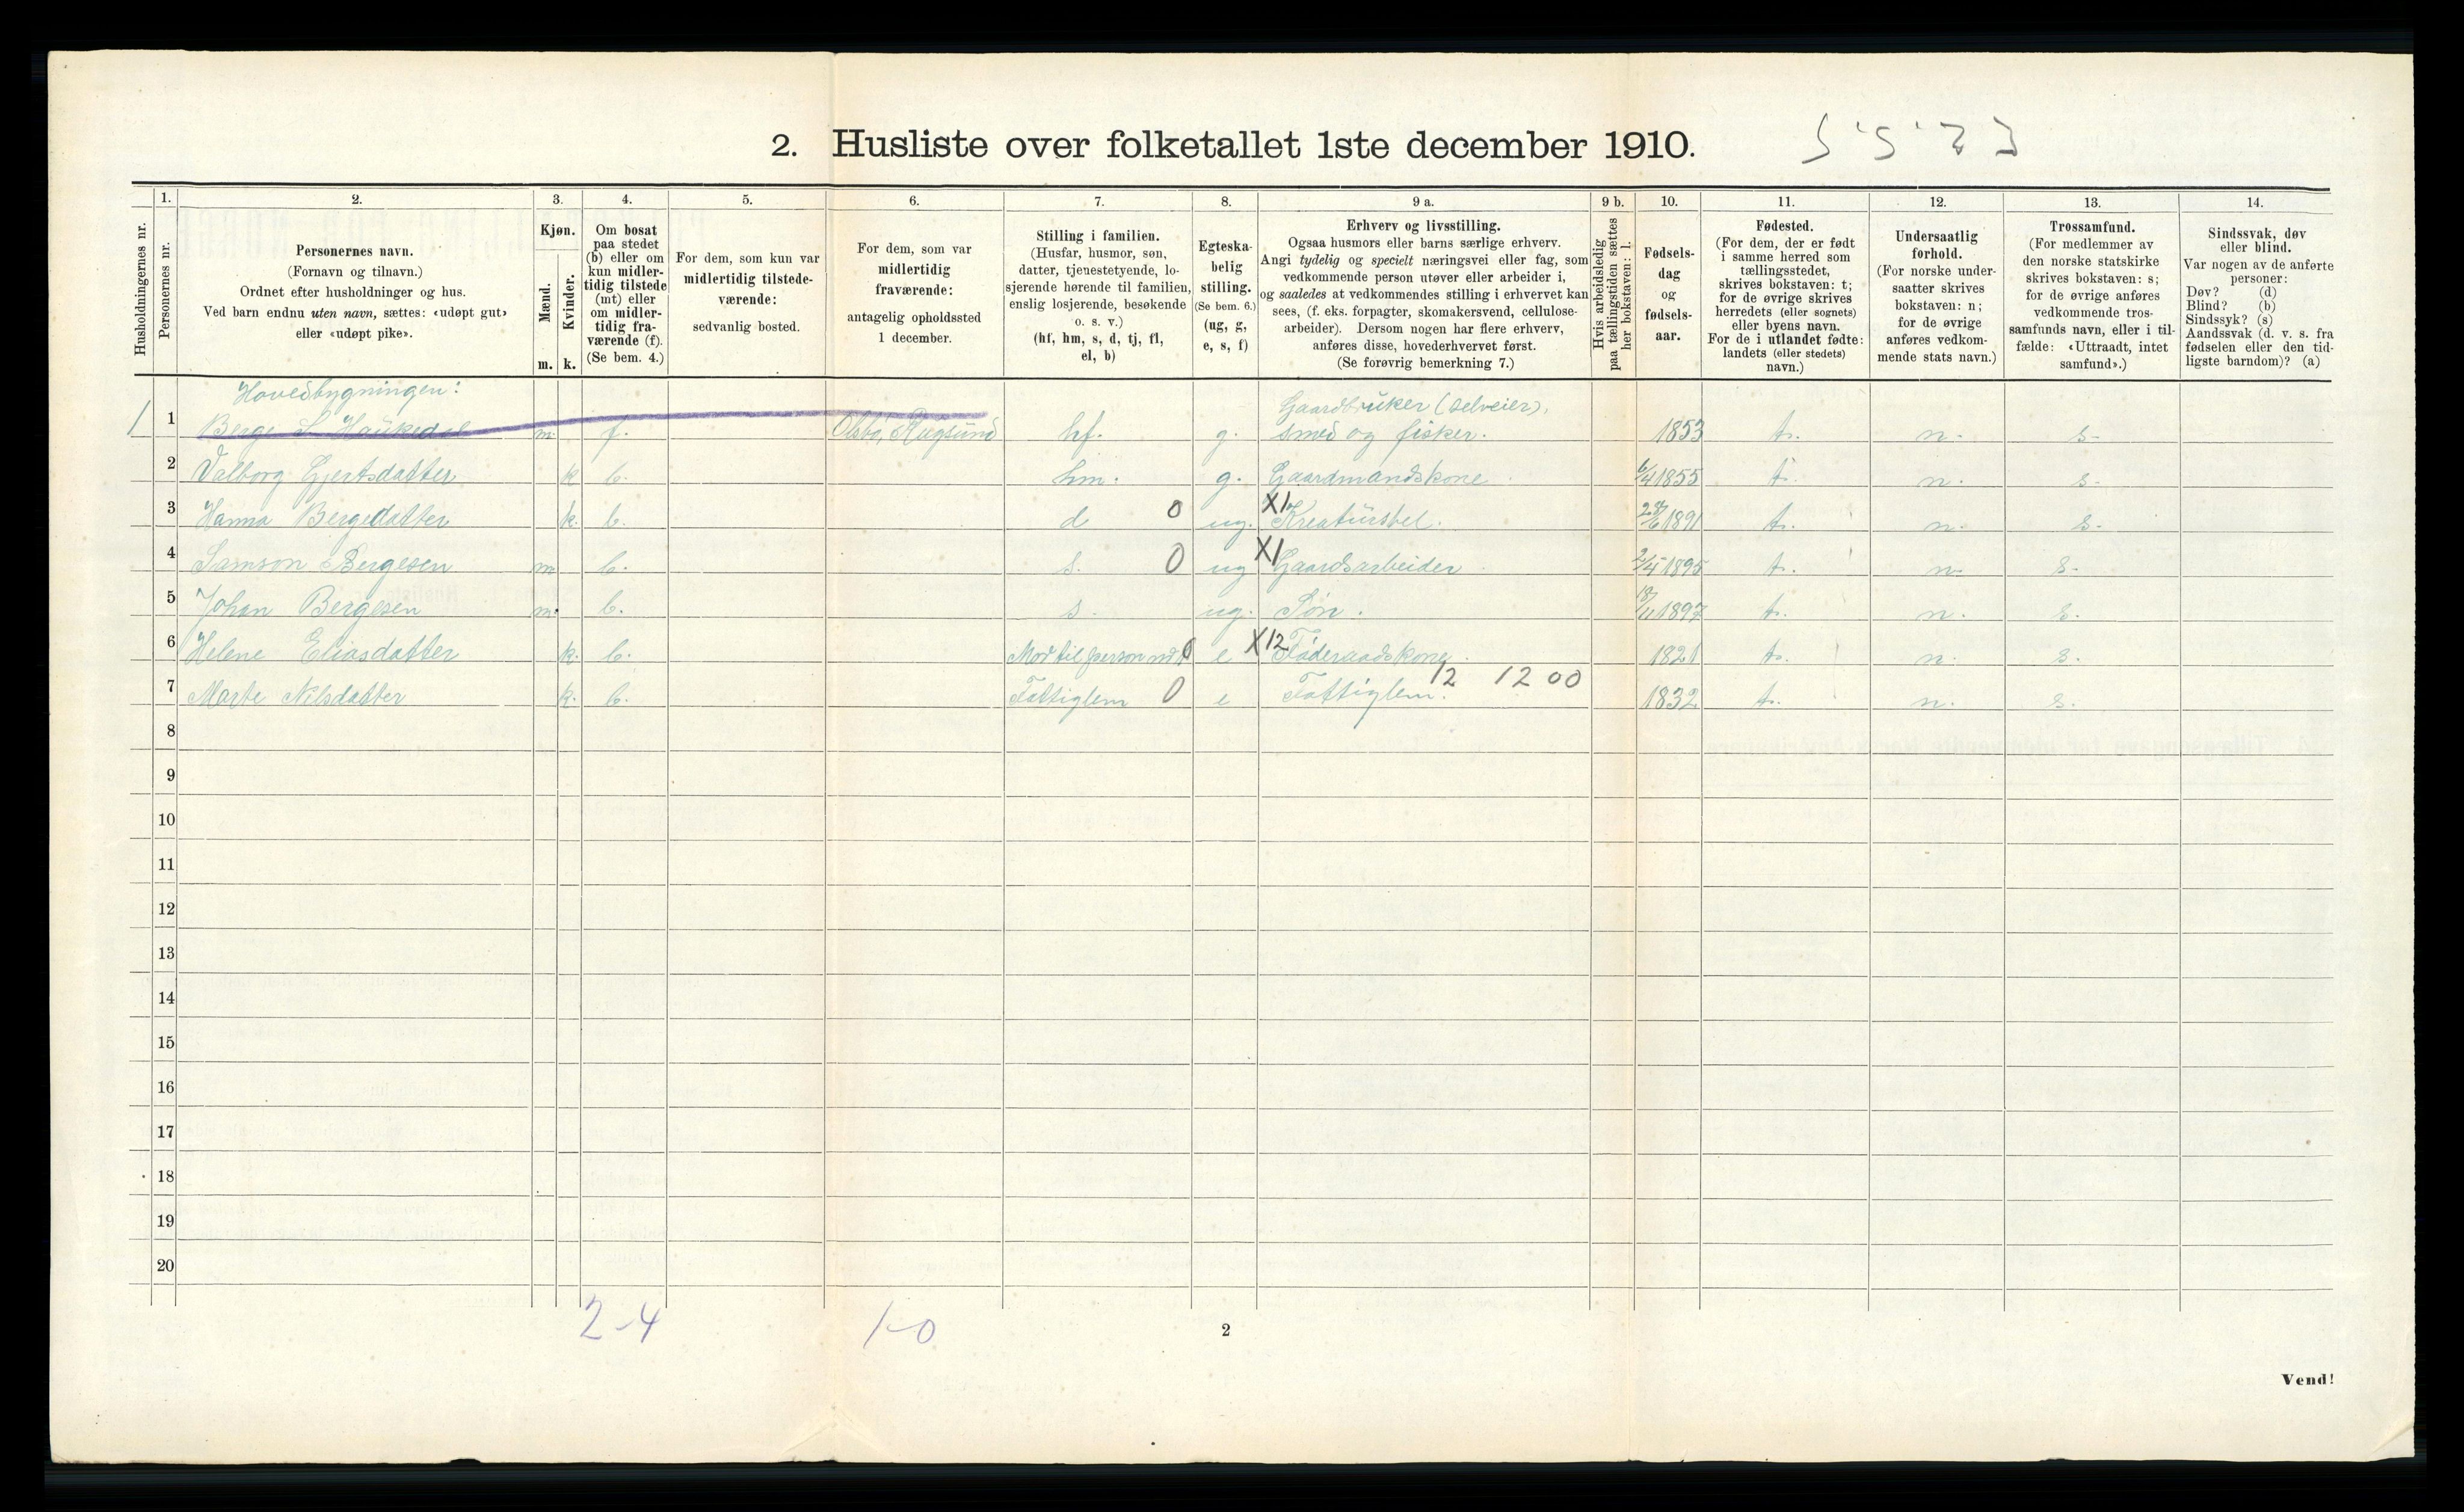 2. Husliste over folketallet 1ste december 1910.
Husholdningernes nr.
1.
Personernes nr.
2.
Personernes navn.
(Fornavn og tilnavn.)
Ordnet efter husholdninger og hus.
Ved barn endnu uten navn, sættes: «udøpt gut»
eller «udøpt pike».
3.
Kjøn.
Mænd.
Kvinder.
m. k.
4.
Om bosat
paa stedet
(b) eller om
kun midler-
tidig tilstede
(mt) eller
om midler-
tidig fra-
værende (f).
(Se bem. 4.)
5.
For dem, som kun var
midlertidig tilstede-
værende:
sedvanlig bosted.
6.
For dem, som var
midlertidig
fraværende:
antagelig opholdssted
1 december.
7.
Stilling i familien.
(Husfar, husmor, søn,
datter, tjenestetyende, lo-
sjerende hørende til familien,
enslig losjerende, besøkende
o. s. v.)
(hf, hm, s, d, tj, fl,
el, b)
8.
Egteska-
belig
stilling.
(Se bem. 6.)
(ug, g,
e, s, f)
9 a.
Erhverv og livsstilling.
Ogsaa husmors eller barns særlige erhverv.
Angi tydelig og specielt næringsvei eller fag, som
vedkommende person utøver eller arbeider i,
og saaledes at vedkommendes stilling i erhvervet kan
sees, (f. eks. forpagter, skomakersvend, cellulose-
arbeider). Dersom nogen har flere erhverv,
anføres disse, hovederhvervet først.
(Se forøvrig bemerkning 7.)
9 b.
Hvis arbeidsledig
paa tællingstiden sættes
her bokstaven: l.
10.
Fødsels-
dag
og
fødsels-
aar.
11.
Fødested.
(For dem, der er født
i samme herred som
tællingsstedet,
skrives bokstaven: t;
for de øvrige skrives
herredets (eller sognets)
eller byens navn.
For de i utlandet fødte:
landets (eller stedets)
navn.)
12.
Undersaatlig
forhold.
(For norske under-
saatter skrives
bokstaven: n;
for de øvrige
anføres vedkom-
mende stats navn.)
13.
Trossamfund.
(For medlemmer av
den norske statskirke
skrives bokstaven: s;
for de øvrige anføres
vedkommende tros-
samfunds navn, eller i til-
fælde: «Uttraadt, intet
samfund».)
14.
Sindssvak, døv
eller blind.
Var nogen av de anførte
personer:
Døv? (d)
Blind? (b)
Sindssyk? (s)
Aandssvak (d. v. s. fra
fødselen eller den tid-
ligste barndom)? (a)
Hovedbygningen:
Gaardbruker (selveier),
1 1 Berge S Haukedal m. f. Rugsund hf. g. smed og fisker. 1853 t. n. s.
2 Valborg Gjertsdatter k b. hm. g. Gaardmandskone 6/4 1855 t. n. s.
3 Hanna Bergedatter k. b. d 0 ug. X1 Kreaturstel. 1891 t. n. s.
4 Samson Bergesen m b. s. 0 ug X1 Gaardsarbeider 1895 t. n. s.
5 Johan Bergesen m. b. s. ug. Søn. 18/11 1897 t. n. s.
6 Helene Eliasdatter k. b. Mor til person nr 1 0 e X12 Føderaadskone. 1821 t. n. s.
12 12 00
7 Marte Nilsdatter k. b. Fattiglem 0 e Fattiglem. 1832 t. n. s.
8
9
10
11
12
13
14
15
16
17
18
19
20
2-4 1-0
2
Vend!